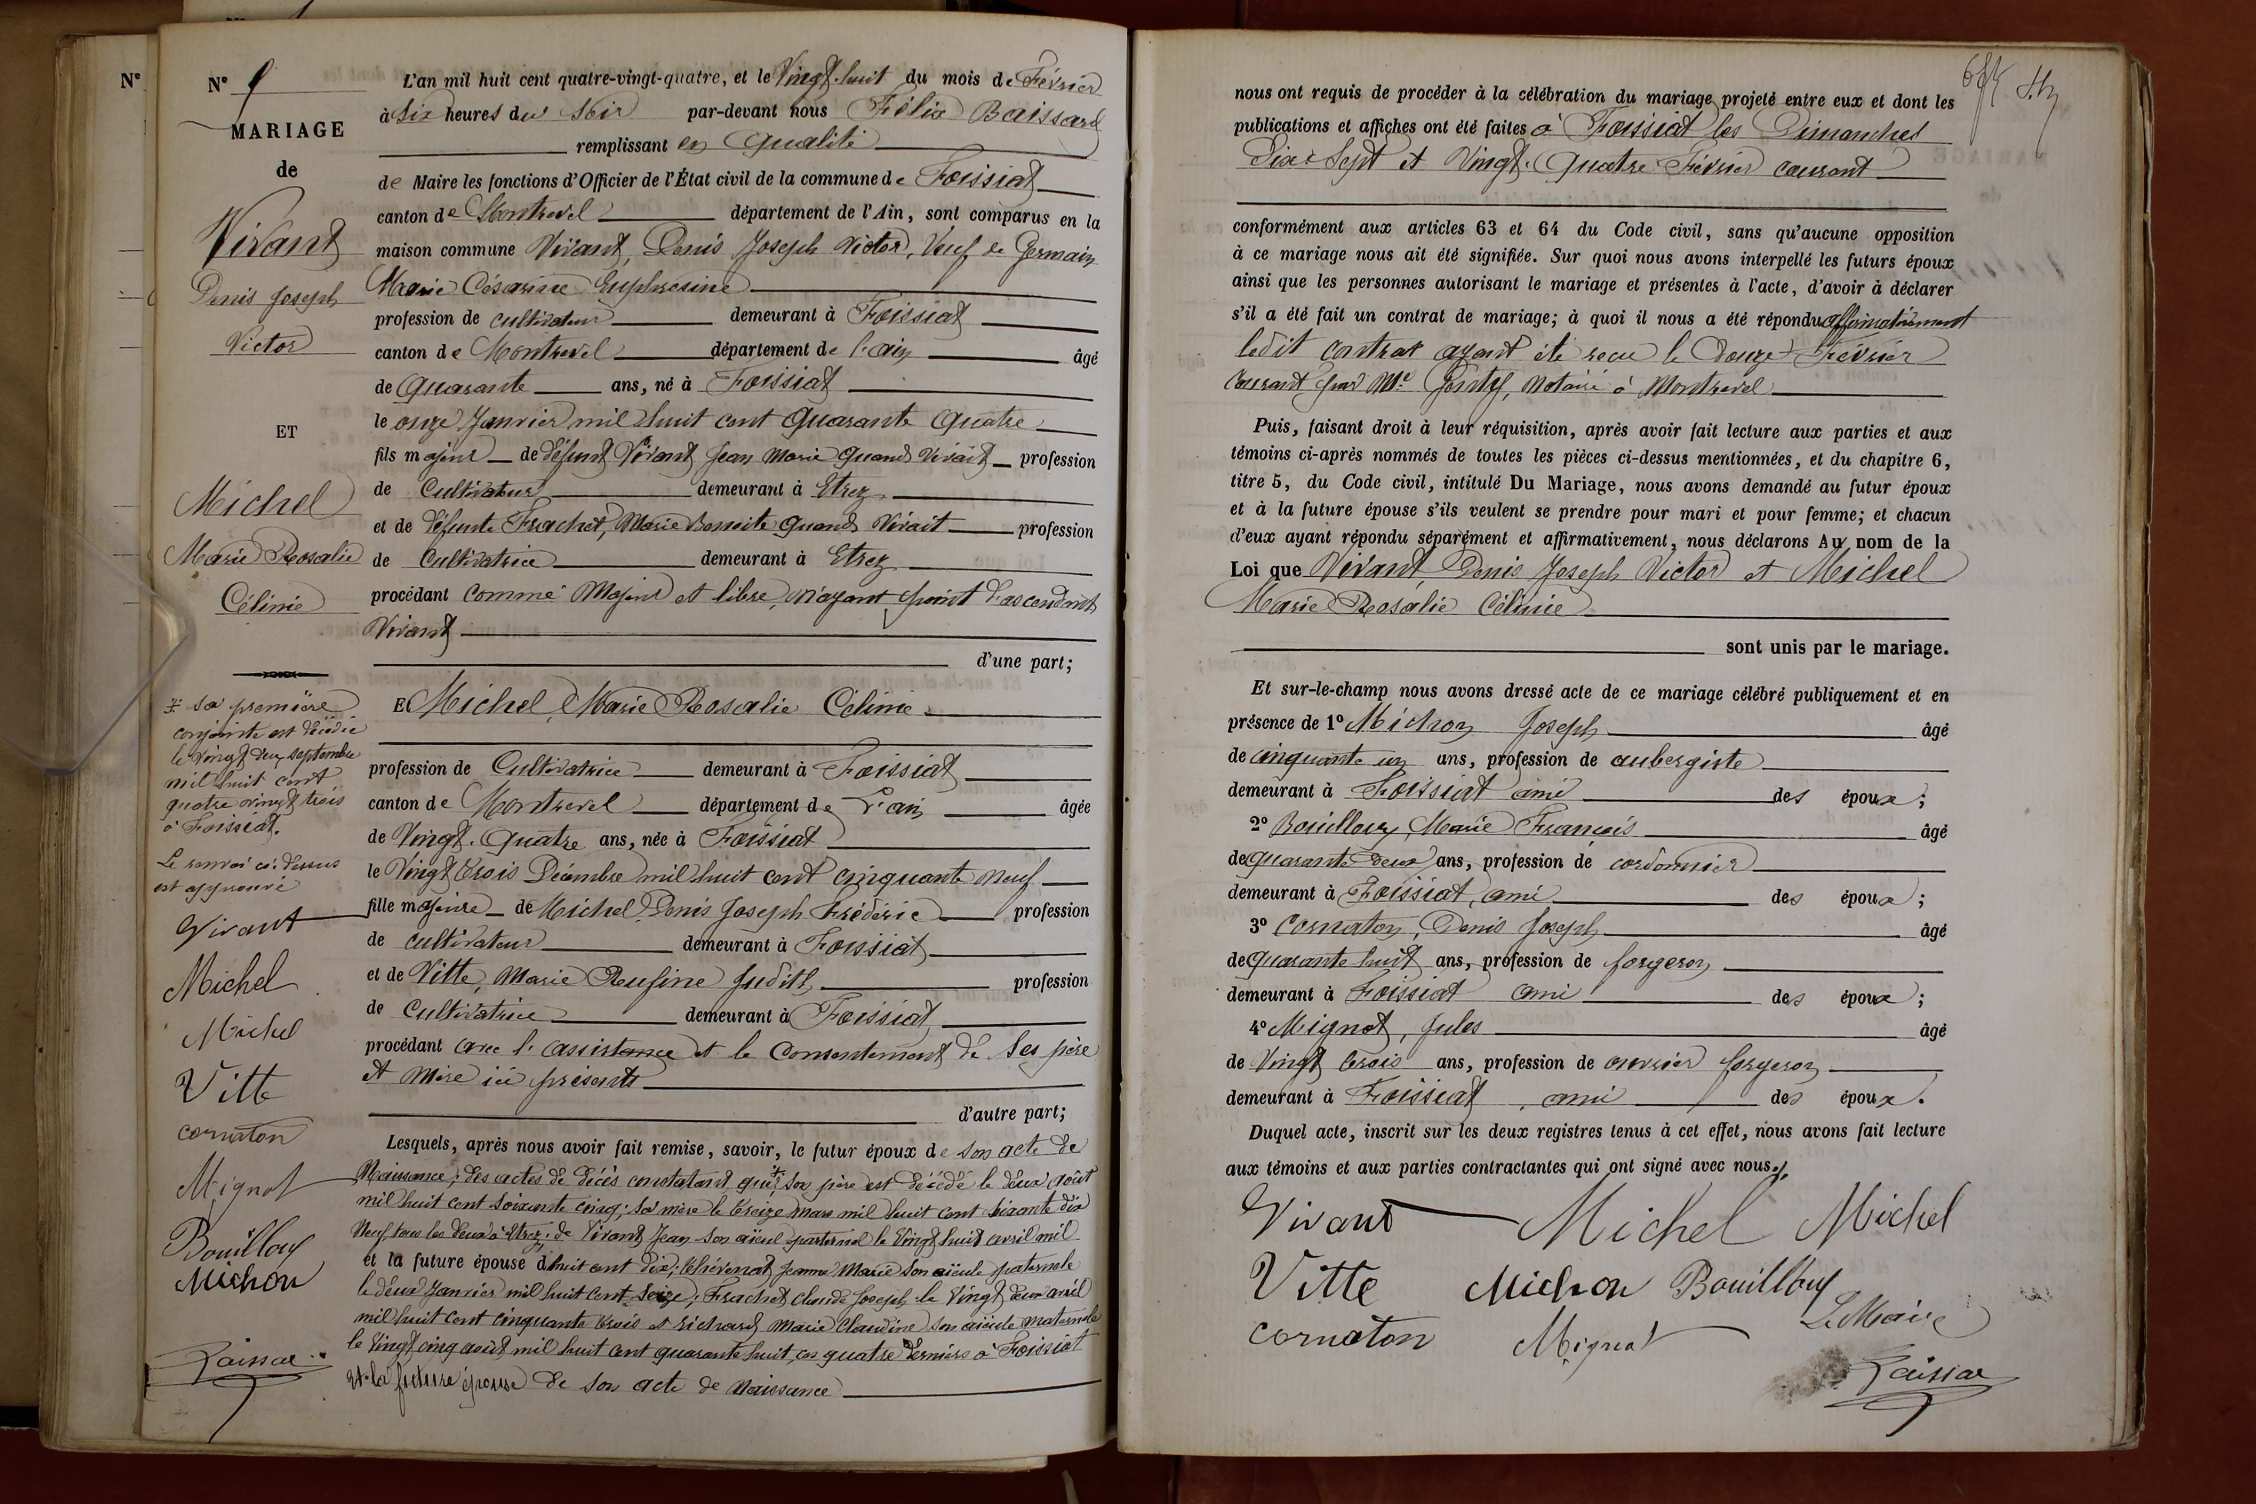 N° 9
MARIAGE
de
Vivant
Denis Joseph
Victor
ET
Michel
Marie Rosalie
Célinie
* sa première
conjointe est décédée
le vingt deux septembre
mil huit cent
quatre vingt trois
à Foissiat.
Le renvoi ci-dessus
est approuvé
Vivant
Michel
Michel
Vitte
cornaton
Mignot
Bouilloux
Michon
L'an mil huit cent quatre-vingt-quatre, et le Vingt huit du mois de Février
à Six heures du Soir par-devant nous Félix
remplissant en qualité
de Maire les fonctions d'Officier de l'État civil de la commune de Foissiat
canton de Montrevel département de l'Ain, sont comparus en la
maison commune Vivant, Denis Joseph Victor, Veuf de Germain
Marie Césarine Euphrosine
profession de cultivateur demeurant à Foissiat
canton de Montrevel département de l'ain âgé
de quarante ans, né à Foissiat
le onze Janvier mil huit cent quarante quatre
fils majeur de défunt Vivant Jean Marie quand vivait profession
de Cultivateur demeurant à Etrez
et de défunte Frachet, Marie Benoite quand vivait profession
de Cultivatrice demeurant à Etrez
procédant comme Majeur et libre, n'ayant point d'ascendants
Vivant
d'une part;
Et Michel, Marie Rosalie Célinie
profession de Cultivatrice demeurant à Foissiat
canton de Montrevel département de L'ain âgée
de Vingt-quatre ans, née à Foissiat
le Vingt trois Décembre mil huit cent cinquante neuf
fille majeure de Michel, Denis Joseph Frédéric profession
de cultivateur demeurant à Foissiat
et de Vitte, Marie Rufine Judith, profession
de Cultivatrice demeurant à Foissiat
procédant avec l'assistance et le consentement de ses père
et mère ici présents
d'autre part;
Lesquels, après nous avoir fait remise, savoir, le futur époux de son acte de
Naissance; des actes de décès constatant que * son père est décédé le deux août
mil huit cent soixante cinq; sa mère le treize mars mil huit cent soixante dix
neuf, tous les deux à Etrez; de Vivant Jean son aïeul paternel le vingt huit avril mil
et la future épouse d huit cent dix; Chévenat Jeanne Marie son aïeule paternelle
le deux Janvier mil huit cent seize; Frachet Claude Joseph le vingt deux avril
mil huit cent cinquante trois et Richard Marie Claudine son aïeule maternelle
le vingt cinq août mil huit cent quarante huit, ces quatre derniers à Foissiat
et la future épouse de son acte de naissance
nous ont requis de procéder à la célébration du mariage projeté entre eux et dont les
publications et affiches ont été faites à Foissiat les Dimanches
Dix-Sept et Vingt-Quatre Février courant
conformément aux articles 63 et 64 du Code civil, sans qu'aucune opposition
à ce mariage nous ait été signifiée. Sur quoi nous avons interpellé les futurs époux
ainsi que les personnes autorisant le mariage et présentes à l'acte, d'avoir à déclarer
s'il a été fait un contrat de mariage; à quoi il nous a été répondu affirmativement
ledit contrat ayant été reçu le Douze Février
courant par Me notaire à Montrevel
Puis, faisant droit à leur réquisition, après avoir fait lecture aux parties et aux
témoins ci-après nommés de toutes les pièces ci-dessus mentionnées, et du chapitre 6,
titre 5, du Code civil, intitulé Du Mariage, nous avons demandé au futur époux
et à la future épouse s'ils veulent se prendre pour mari et pour femme; et chacun
d'eux ayant répondu séparément et affirmativement, nous déclarons Au nom de la
Loi que Vivant, Denis Joseph Victor et Michel
Marie Rosalie Célinie
sont unis par le mariage.
Et sur-le-champ nous avons dressé acte de ce mariage célébré publiquement et en
présence de 1° Michon Joseph âgé
de cinquante un ans, profession de aubergiste
demeurant à Foissiat ami des époux;
2° Bouilloux, Marie François âgé
de quarante deux ans, profession de cordonnier
demeurant à Foissiat, ami des époux;
3° Cornaton, Denis Joseph âgé
de quarante huit ans, profession de forgeron
demeurant à Foissiat ami des époux;
4° Mignot, Jules âgé
de Vingt trois ans, profession de ouvrier forgeron
demeurant à Foissiat, ami des époux.
Duquel acte, inscrit sur les deux registres tenus à cet effet, nous avons fait lecture
aux témoins et aux parties contractantes qui ont signé avec nous.
Vivant Michel Michel
Vitte Michon Bouilloux
cornaton Mignot Le Maire